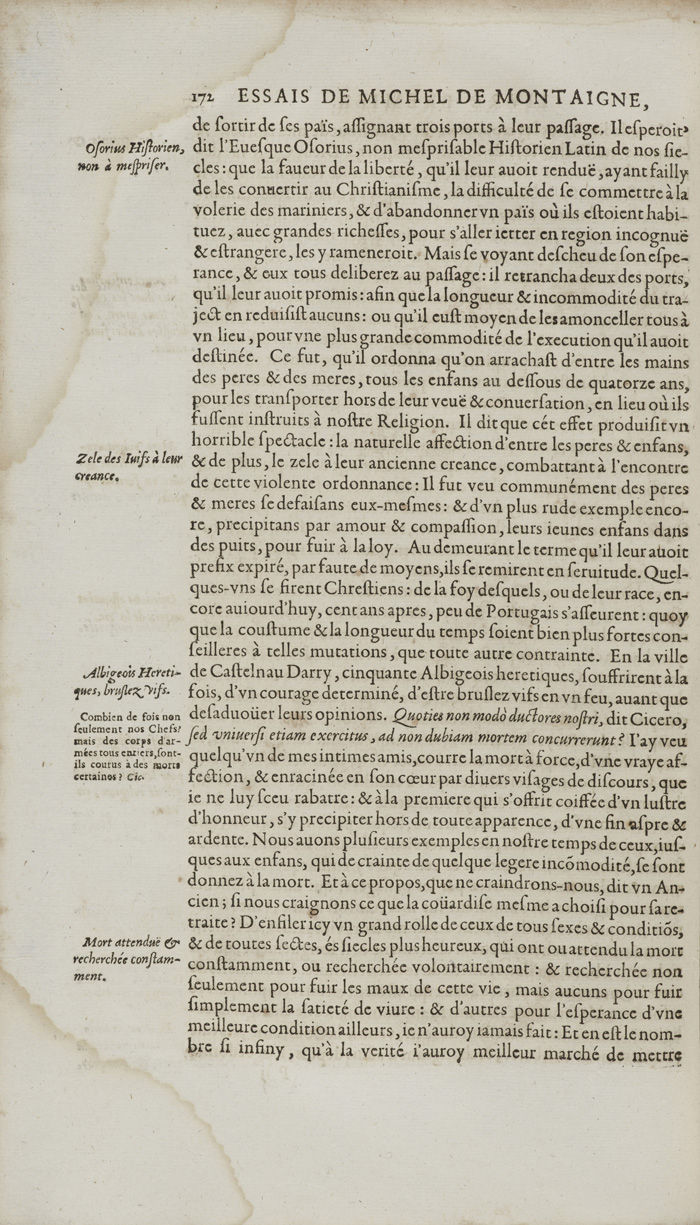 172 ESSAIS DE MICHEL DE MONTAIGNE,
de ſortir de ſes païs, aſſignant trois ports à leur paſſage. Il eſperoit,
Oſorius Hiſtorien,
non à meſpriſer.
dit l'Eueſque Oſorius, non meſpriſable Hiſtorien Latin de nos ſie-
cles: que la faueur de la liberté, qu'il leur auoit renduë, ayant failly
de les conuertir au Chriſtianiſme, la difficulté de ſe commettre à la
volerie des mariniers, & d'abandonner vn païs où ils eſtoient habi-
tuez, auec grandes richeſſes, pour s'aller ietter en region incognuë
& eſtrangere, les y rameneroit. Mais ſe voyant deſcheu de ſon eſpe-
rance, & eux tous deliberez au paſſage: il retrancha deux des ports,
qu'il leur auoit promis: afin que la longueur & incommodité du tra-
ject en reduiſiſt aucuns: ou qu'il euſt moyen de les amonceller tous à
vn lieu, pour vne plus grande commodité de l'execution qu'il auoit
deſtinée. Ce fut, qu'il ordonna qu'on arrachaſt d'entre les mains
des peres & des meres, tous les enfans au deſſous de quatorze ans,
pour les tranſporter hors de leur veuë & conuerſation, en lieu où ils
fuſſent inſtruits à noſtre Religion. Il dit que cét effet produiſit vn
horrible ſpectacle: la naturelle affection d'entre les peres & enfans,
Zele des Iuifs à leur
creance.
& de plus, le zele à leur ancienne creance, combattant à l'encontre
de cette violente ordonnance: Il fut veu communément des peres
& meres ſe defaiſans eux-meſmes: & d'vn plus rude exemple enco-
re, precipitans par amour & compaſſion, leurs ieunes enfans dans
des puits, pour fuir à la loy. Au demeurant le terme qu'il leur auoit
prefix expiré, par faute de moyens, ils ſe remirent en ſeruitude. Quel-
ques-vns ſe firent Chreſtiens: de la foy deſquels, ou de leur race, en-
core auiourd'huy, cent ans apres, peu de Portugais s'aſſeurent: quoy
que la couſtume & la longueur du temps ſoient bien plus fortes con-
ſeilleres à telles mutations, que toute autre contrainte. En la ville
Albigeois Hereti-
ques, bruſlez vifs.
de Caſtelnau Darry, cinquante Albigeois heretiques, ſouffrirent à la
fois, d'vn courage determiné, d'eſtre bruſlez vifs en vn feu, auant que
deſaduoüer leurs opinions. Quoties non modò ductores noſtri, dit Cicero,
Combien de fois non
ſeulement nos Chefs,
mais des corps d'ar-
mées tous entiers, ſont-
ils courus à des morts
certaines? Cic.
ſed vniuerſi etiam exercitus, ad non dubiam mortem concurrerunt? I'ay veu
quelqu'vn de mes intimes amis, courre la mort à force, d'vne vraye af-
fection, & enracinée en ſon cœur par diuers viſages de diſcours, que
ie ne luy ſceu rabatre: & à la premiere qui s'offrit coiffée d'vn luſtre
d'honneur, s'y precipiter hors de toute apparence, d'vne fin aſpre &
ardente. Nous auons pluſieurs exemples en noſtre temps de ceux, iuſ-
ques aux enfans, qui de crainte de quelque legere incõmodité, ſe ſont
donnez à la mort. Et à ce propos, que ne craindrons-nous, dit vn An-
cien; ſi nous craignons ce que la coüardiſe meſme a choiſi pour ſa re-
traite? D'enfiler icy vn grand rolle de ceux de tous ſexes & conditiõs,
Mort attenduë &
recherchée conſtam-
ment.
& de toutes ſectes, és ſiecles plus heureux, qui ont ou attendu la mort
conſtamment, ou recherchée volontairement: & recherchée non
ſeulement pour fuir les maux de cette vie, mais aucuns pour fuir
ſimplement la ſatieté de viure: & d'autres pour l'eſperance d'vne
meilleure condition ailleurs, ie n'auroy iamais fait: Et en eſt le nom-
bre ſi infiny, qu'à la verité i'auroy meilleur marché de mettre